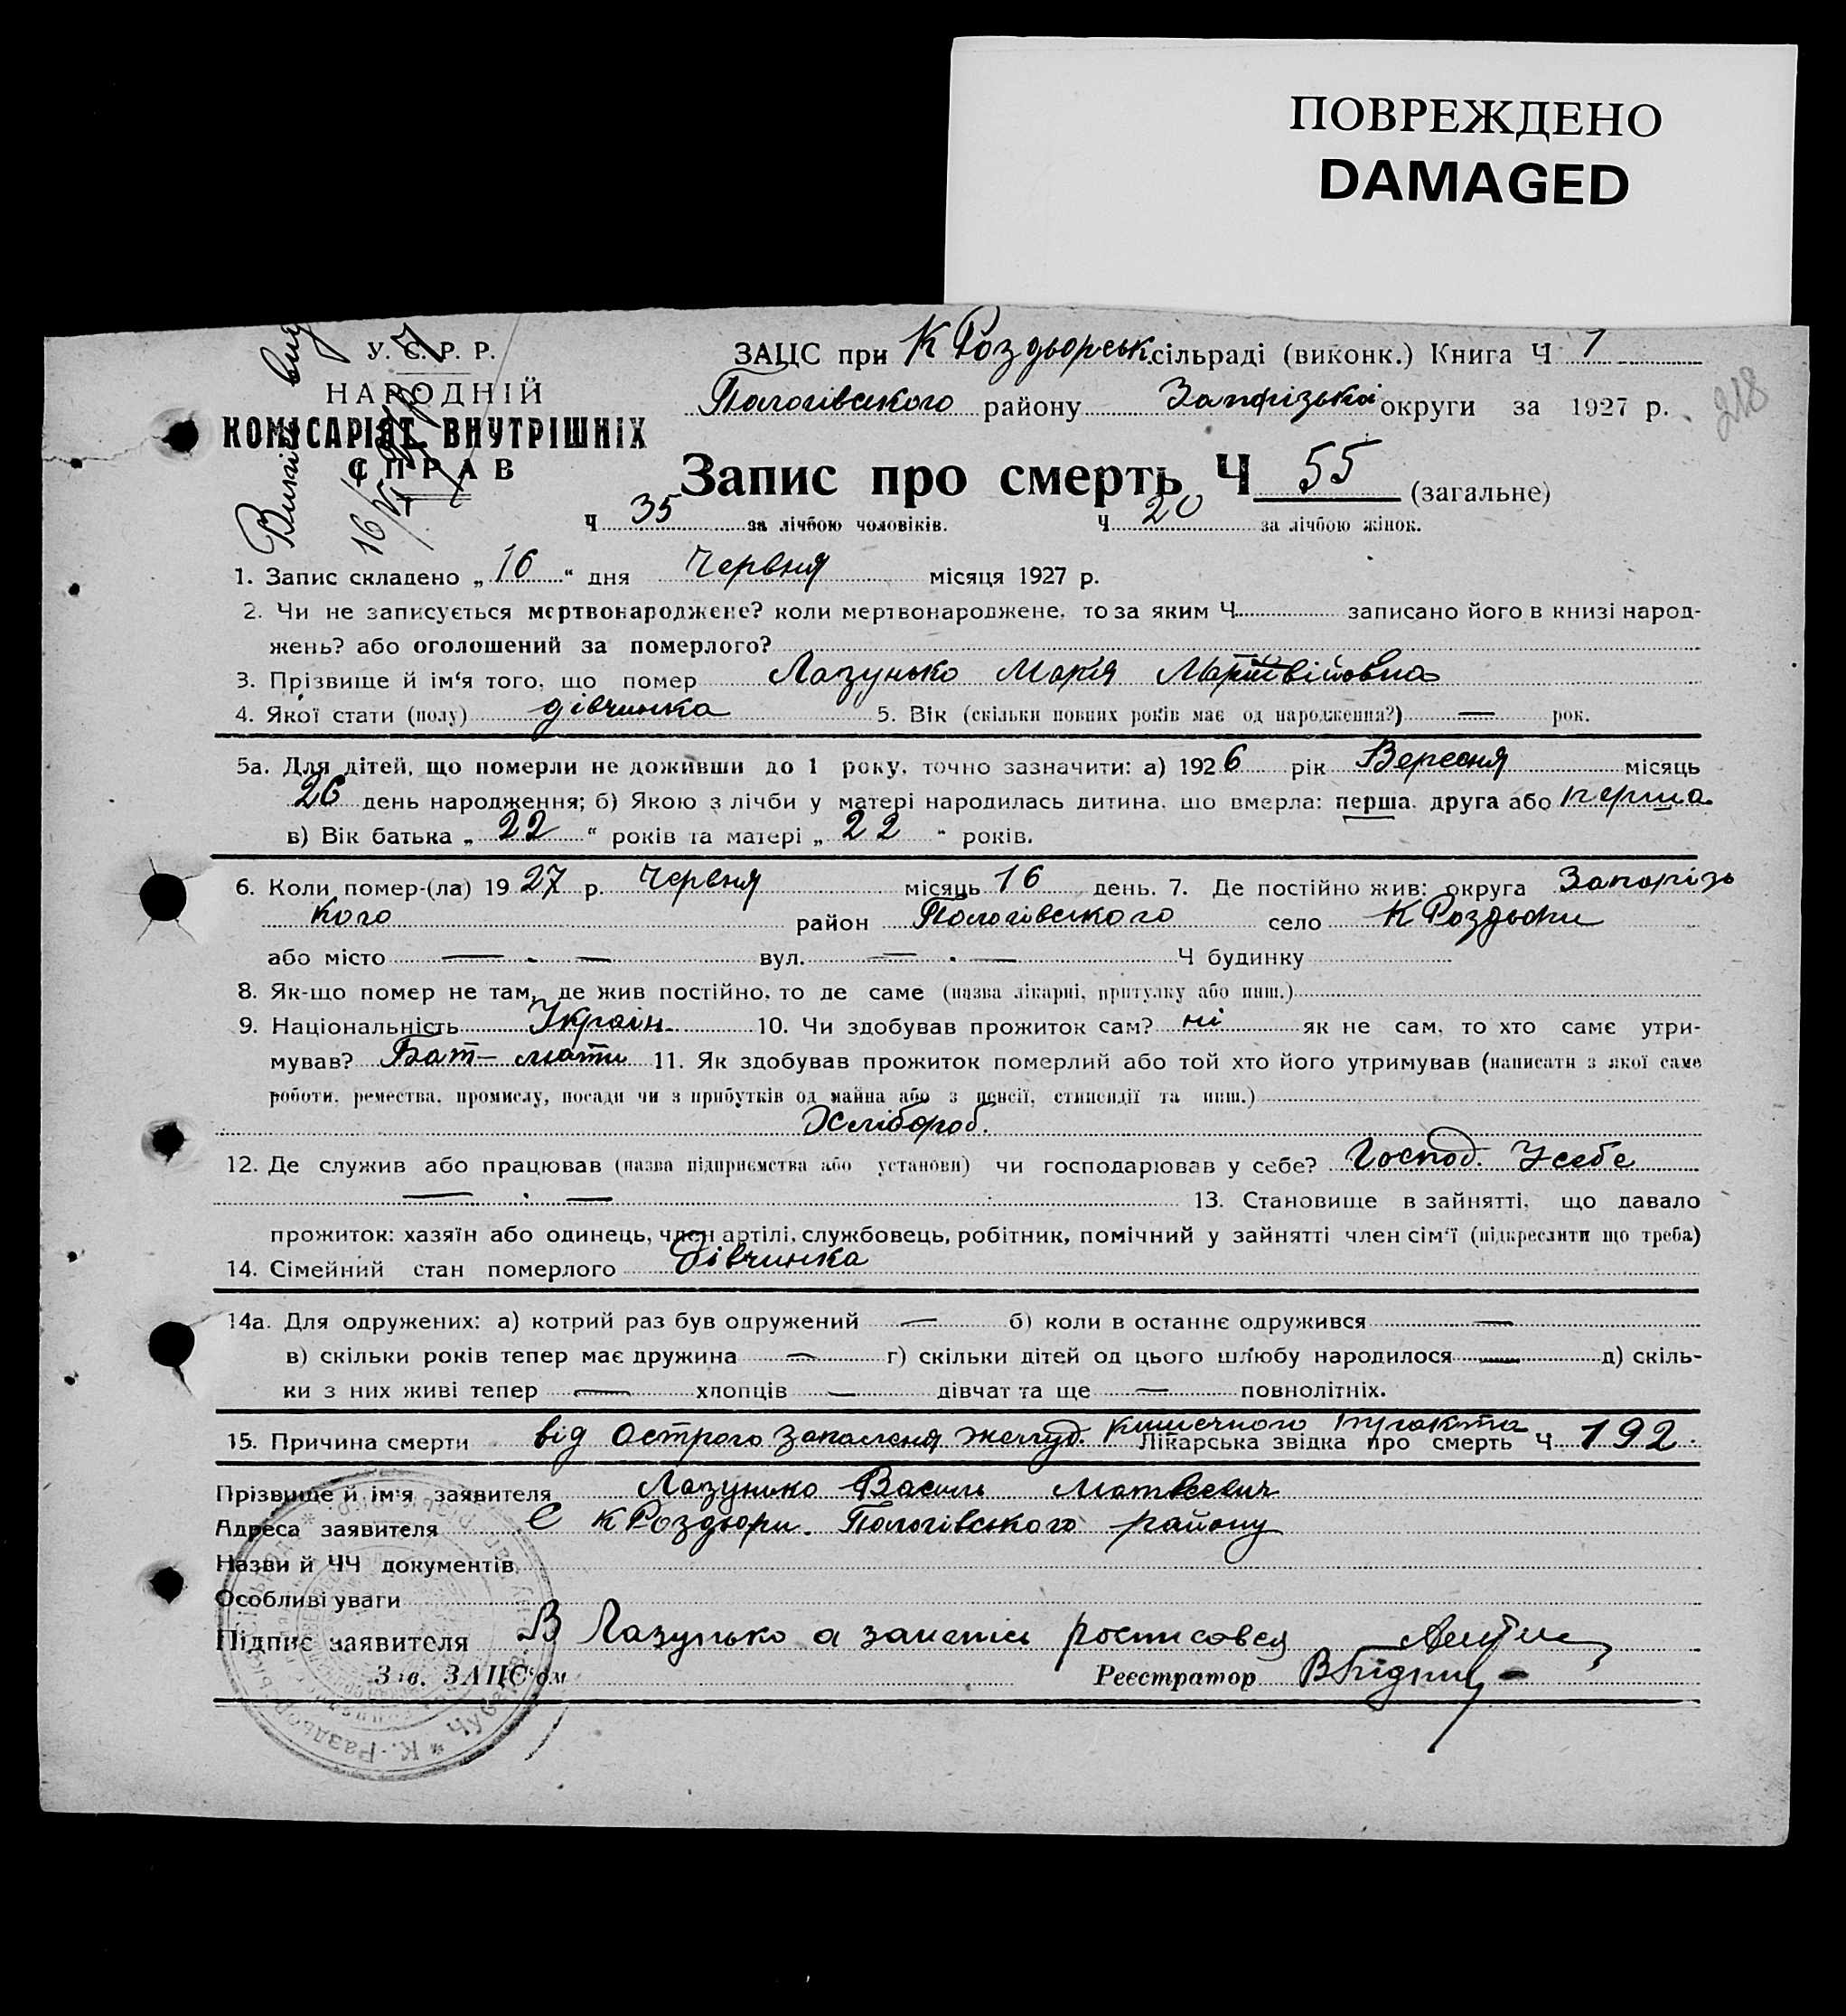 ПОВРЕЖДЕНО
DAMAGED
У. С. Р. Р.
НАРОДНІЙ
КОМІСАРІЯТ ВНУТРІШНІХ
СПРАВ
218
ЗАЦС при К Роздьорськ. сільраді (виконк.) Книга Ч 1
Пологівського району Запорізької округи за 1927 р.
Запис про смерть Ч 55 (загальне)
Ч 35 за лічбою чоловіків. Ч 20 за лічбою жінок.
1. Запис складено „ 16 “ дня Червня місяця 1927 р.
2. Чи не записується мертвонароджене? коли мертвонароджене, то за яким Ч записано його в книзі народ-
жень? або оголошений за померлого?
3. Прізвище й ім‘я того, що помер Лазунько Марія
4. Якої стати (полу) дівчинка 5. Вік (скільки повних років має од народження?) — рок.
5а. Для дітей, що померли не доживши до 1 року, точно зазначити: а) 1926 рік Вересня місяць
26 день народження; б) Якою з лічби у матері народилась дитина, що вмерла: перша, друга або перша
в) Вік батька „ 22 “ років та матері „ 22 “ років.
6. Коли помер-(ла) 1927 р. Червня місяць 16 день. 7. Де постійно жив: округа Запорізь
кого район Пологівського село К Роздьори
або місто — . — вул. — . — Ч будинку
8. Як-що помер не там, де жив постійно, то де саме (назва лікарні, притулку або инш.)
9. Національність Україн. 10. Чи здобував прожиток сам? ні як не сам, то хто саме утри-
мував? Бат— мати 11. Як здобував прожиток померлий або той хто його утримував (написати з якої саме
роботи, ремества, промислу, посади чи з прибутків од майна або з пенсії, стипендії та инш.)
Хлібороб.
12. Де служив або працював (назва підприємства або установи) чи господарював у себе? Господ. У себе
— . — 13. Становище в зайнятті, що давало
прожиток: хазяїн або одинець, член артілі, службовець, робітник, помічний у зайнятті член сім‘ї (підкреслити що треба)
14. Сімейний стан померлого Дівчинка
14а. Для одружених: а) котрий раз був одружений — б) коли в останнє одружився —
в) скільки років тепер має дружина — г) скільки дітей од цього шлюбу народилося — д) скіль-
ки з них живі тепер — хлопців — дівчат та ще — повнолітніх.
15. Причина смерти від Острого запаленя желуд. кишечного тракта Лікарська звідка про смерть Ч. 192.
Прізвище й ім‘я заявителя Лазунько Василь Матвеевич
Адреса заявителя С К Роздьори. Пологівського району
Назви й ЧЧ документів
Особливі уваги
Підпис заявителя В Лазунько а
Зав. ЗАЦС‘ом Реєстратор
К.-Раздьор